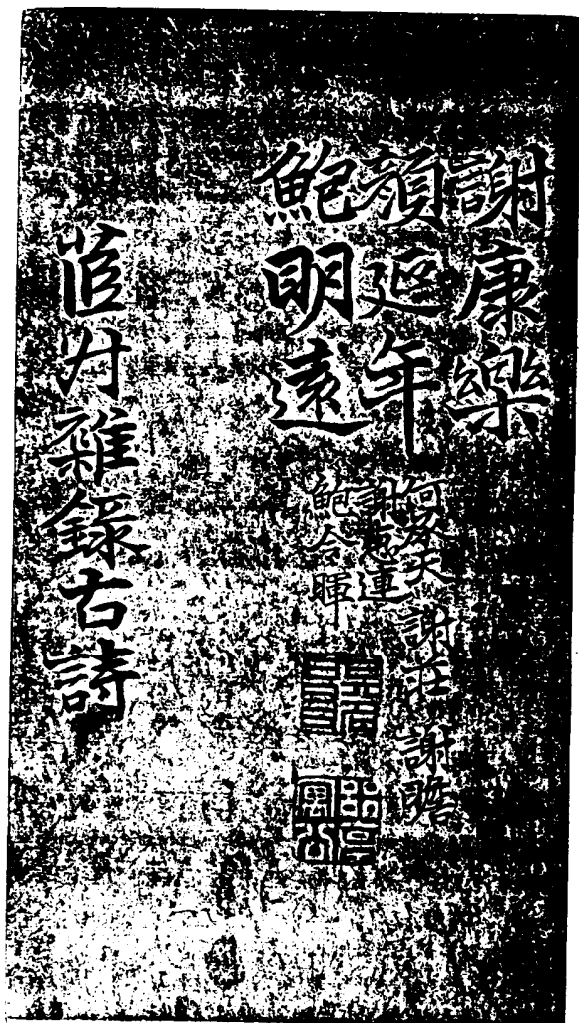 謝康樂
顏延年
鮑明遠
何承天 謝莊 謝瞻
謝惠連
鮑令暉
雜錄古詩